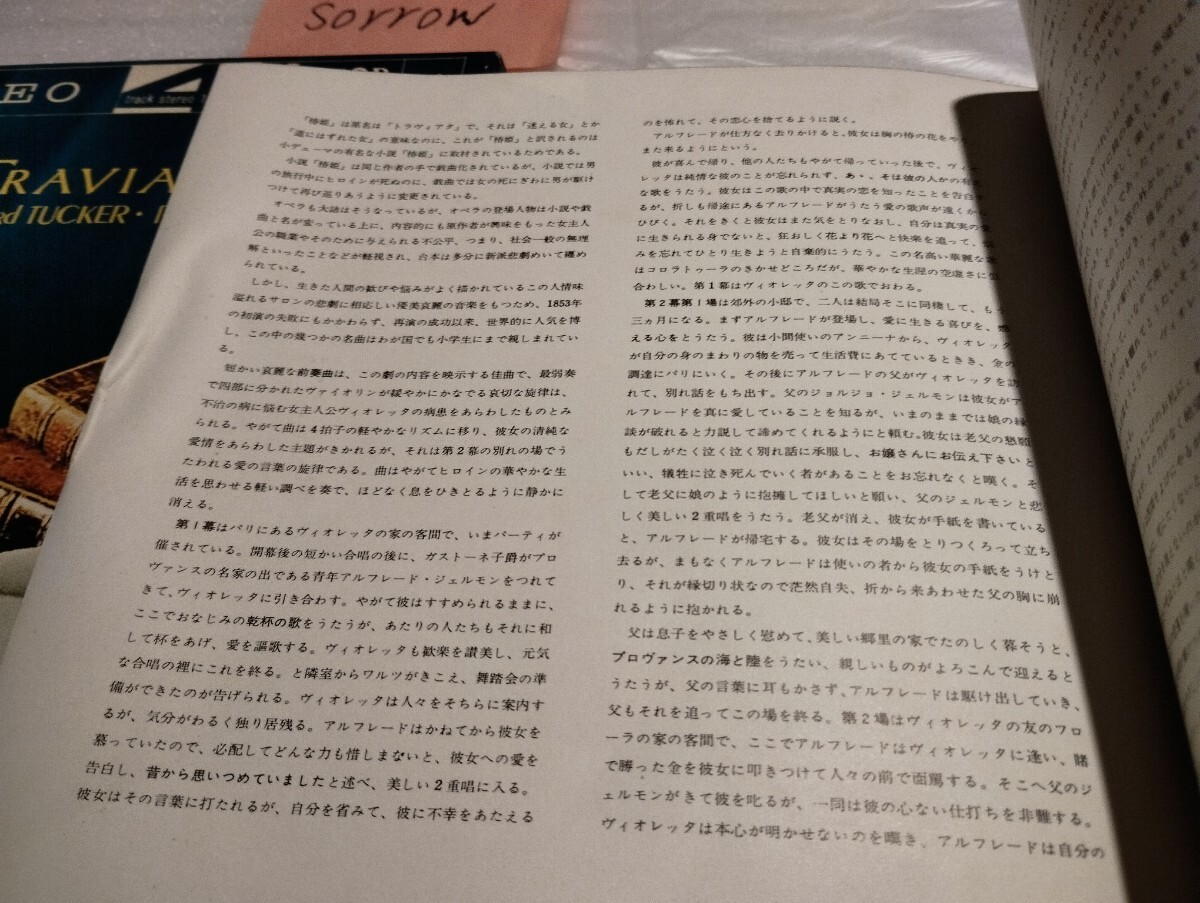 sorrow
EO
track stereo
RAVIA
rd TUCKER・
「椿姫」は原名は「トラヴィアタ」で、それは「迷える女」とか
「道にはずれた女」の意味なのに、これが「椿姫」と訳されるのは
小デューマの有名な小説「椿姫」に取材されているためである。
小説「椿姫」は同じ作者の手で戯曲化されているが、小説では男
の旅行中にヒロインが死ぬのに、戯曲では女の死にぎわに男が駆け
つけて再び巡りあうように変更されている。
オペラも大詰はそうなっているが、オペラの登場人物は小説や戯
曲と名が変っている上に、内容的にも原作者が興味をもった女主人
公の職業やそのために与えられる不公平、つまり、社会一般の無理
解といったことなどが軽視され、台本は多分に新派悲劇めいて纏め
られている。
しかし、生きた人間の歓びや悩みがよく描かれているこの人情味
溢れるサロンの悲劇に相応しい優美哀麗の音楽をもつため、1853年
の初演の失敗にもかかわらず、再演の成功以来、世界的に人気を博
し、この中の幾つかの名曲はわが国でも小学生にまで親しまれてい
る。
短かい哀麗な前奏曲は、この劇の内容を暎示する佳曲で、最弱奏
で四部に分かれたヴァイオリンが緩やかにかなでる哀切な旋律は、
不治の病に悩む女主人公ヴィオレッタの病患をあらわしたものとみ
られる。やがて曲は4拍子の軽やかなリズムに移り、彼女の清純な
愛情をあらわした主題がきかれるが、それは第2幕の別れの場でう
たわれる愛の言葉の旋律である。曲はやがてヒロインの華やかな生
活を思わせる軽い調べを奏で、ほどなく息をひきとるように静かに
消える。
第1幕はパリにあるヴィオレッタの家の客間で、いまパーティが
催されている。開幕後の短かい合唱の後に、ガストーネ子爵がプロ
ヴァンスの名家の出である青年アルフレード・ジェルモンをつれて
きて、ヴィオレッタに引き合わす。やがて彼はすすめられるままに、
ここでおなじみの乾杯の歌をうたうが、あたりの人たちもそれに和
して杯をあげ、愛を謳歌する。ヴィオレッタも歓楽を讃美し、元気
な合唱の裡にこれを終る。と隣室からワルツがきこえ、舞踏会の準
備ができたのが告げられる。ヴィオレッタは人々をそちらに案内す
るが、気分がわるく独り居残る。アルフレードはかねてから彼女を
慕っていたので、必配してどんな力も惜しまないと、彼女への愛を
告白し、昔から思いつめていましたと述べ、美しい2重唱に入る。
彼女はその言葉に打たれるが、自分を省みて、彼に不幸をあたえる
のを怖れて、その恋心を捨てるように説く。
アルフレードが仕方なく去りかけると、彼女は胸の椿の花をや
また来るようにという。
彼が喜んで帰り、他の人たちもやがて帰っていった後で、ヴィ
レッタは純情な彼のことが忘れられず、あゝ、そは彼の人かの有
な歌をうたう。彼女はこの歌の中で真実の恋を知ったことを告白
るが、折しも帰途にあるアルフレードがうたう愛の歌声が遠くか
ひびく。それをきくと彼女はまた気をとりなおし、自分は真実の
に生きられる身でないと、狂おしく花より花へと快楽を追って、
みを忘れてひとり生きようと自棄的にうたう。この名高い華麗な
はコロラトゥーラのきかせどころだが、華やかな生涯の空虚さに
合わしい。第1幕はヴィオレッタのこの歌でおわる。
第2幕第1場は郊外の小邸で、二人は結局そこに同棲して、も
三ヵ月になる。まずアルフレードが登場し、愛に生きる喜びを、燃
える心をとうたう。彼は小間使いのアンニーナから、ヴィオレッタ
が自分の身のまわりの物を売って生活費にあてているときき、金の
調達にパリにいく。その後にアルフレードの父がヴィオレッタを訪
れて、別れ話をもち出す。父のジョルジョ・ジェルモンは彼女がア
ルフレードを真に愛していることを知るが、いまのままでは娘の縁
談が破れると力説して諦めてくれるようにと頼む。彼女は老父の懇願
もだしがたく泣く泣く別れ話に承服し、お嬢さんにお伝え下さいと
いい、犠牲に泣き死んでいく者があることをお忘れなくと嘆く。そ
して老父に娘のように抱擁してほしいと願い、父のジェルモンと悲
しく美しい2重唱をうたう。老父が消え、彼女が手紙を書いている
と、アルフレードが帰宅する。彼女はその場をとりつくろって立ち
去るが、まもなくアルフレードは使いの者から彼女の手紙をうけと
り、それが縁切り状なので茫然自失、折から来あわせた父の胸に崩
れるように抱かれる。
父は息子をやさしく慰めて、美しい郷里の家でたのしく暮そうと、
プロヴァンスの海と陸をうたい、親しいものがよろこんで迎えると
うたうが、父の言葉に耳もかさず、アルフレードは駆け出していき、
父もそれを追ってこの場を終る。第2場はヴィオレッタの友のフロ
ーラの家の客間で、ここでアルフレードはヴィオレッタに逢い、賭
で勝った金を彼女に叩きつけて人々の前で面罵する。そこへ父のジ
ェルモンがきて彼を叱るが、一同は彼の心ない仕打ちを非難する。
ヴィオレッタは本心が明かせないのを嘆き、アルフレードは自分の